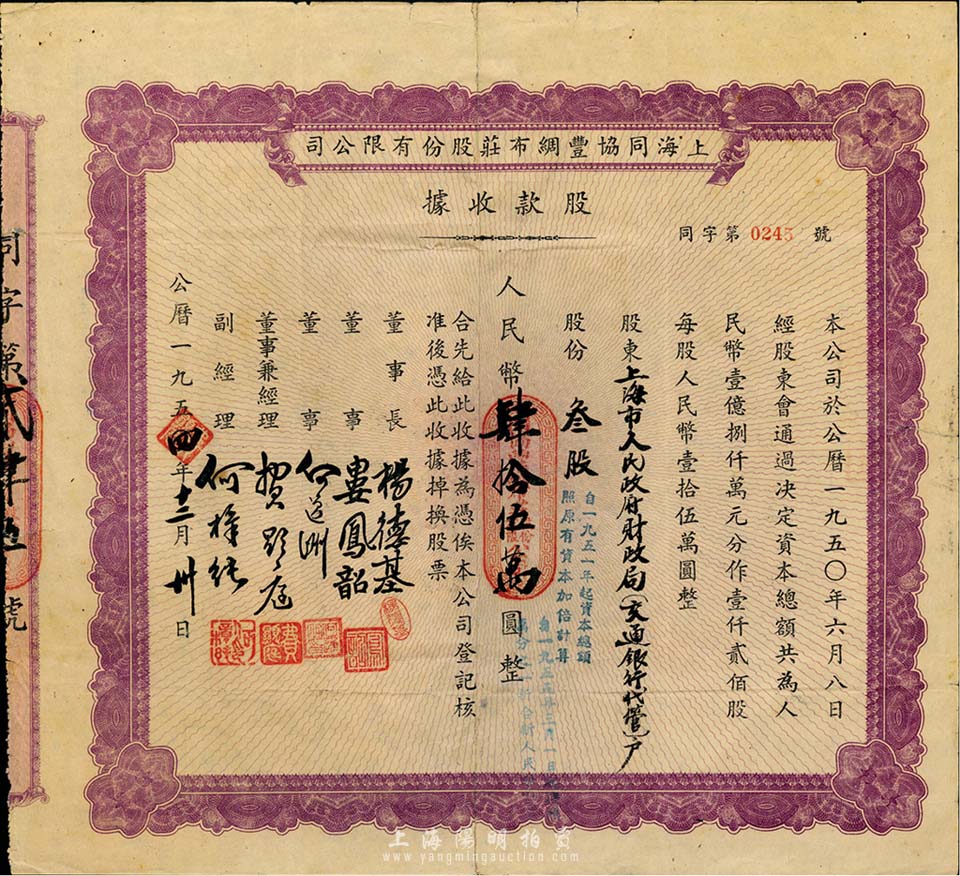 上海同協豐綢布莊股份有限公司
股款收據
同字第 0245 號
本公司於公曆一九五〇年六月八日
經股東會通過决定資本總額共為人
民幣壹億捌仟萬元分作壹仟貳佰股
每股人民幣壹拾伍萬圓整
股東上海市人民政府財政局(交通銀行代管)戶
股份 叁股
自一九五一年起資本總額
照原有資本加倍計算
人民幣肆拾伍萬圓整
合先給此收據為憑俟本公司登記核
准後憑此收據掉換股票
董事長 楊德基
董事 婁鳳韶
董事 何道洲
董事兼經理
副經理 何
公曆一九五四年十二月卅日
同字第貳肆伍號
上海陽明拍賣
www.yangmingauction.com